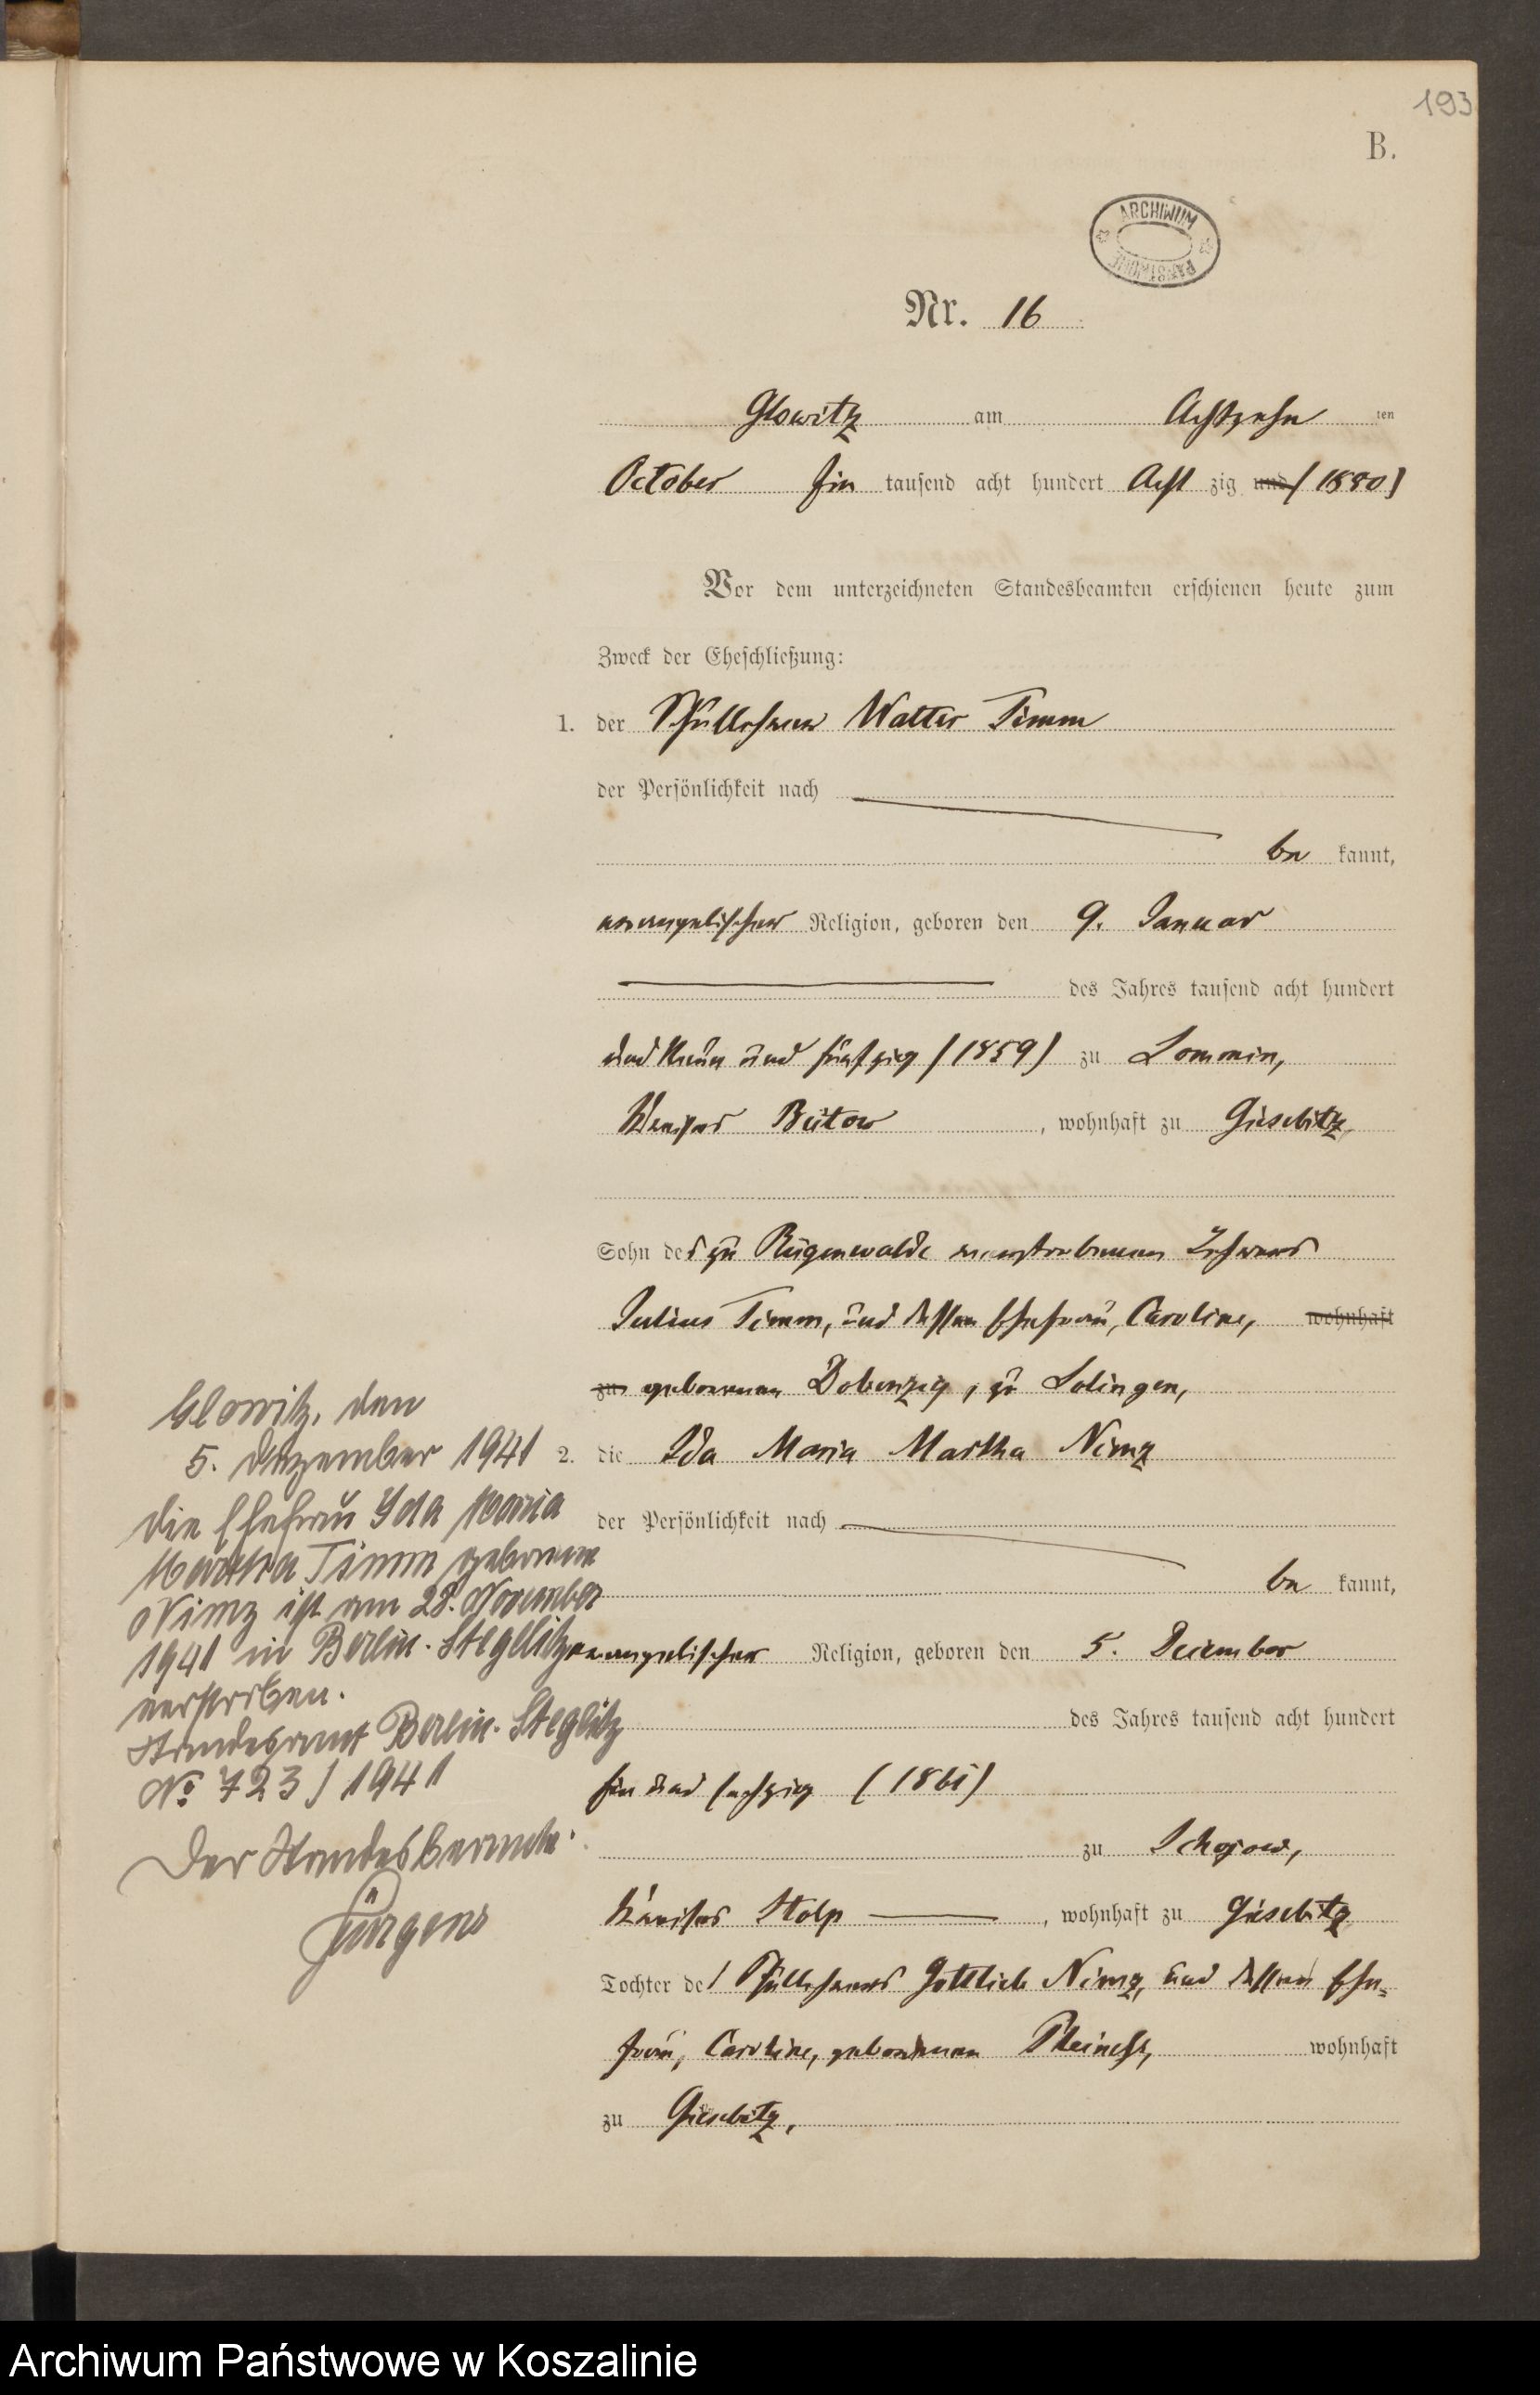 193
B.
ARCHIWUM PAŃSTWOWE
Nr. 16
Glowitz am Achtzehn ten
October Ein tausend acht hundert Acht zig und (1880)
Vor dem unterzeichneten Standesbeamten erschienen heute zum
Zweck der Eheschließung:
1. der Schullehrer Walter Timm
der Persönlichkeit nach
be kannt,
evangelischer Religion, geboren den 9. Januar
des Jahres tausend acht hundert
und Neun und fünfzig (1859) zu
Kreises Bütow, wohnhaft zu Giesebitz,
Sohn des zu Rügenwalde verstorbenen Lehrers
Julius Timm, und dessen Ehefrau, Caroline, wohnhaft
zu geborenen, zu Solingen,
2. die Ida Maria Martha Nimz
der Persönlichkeit nach
be kannt,
evangelischer Religion, geboren den 5. December
des Jahres tausend acht hundert
Ein und sechzig (1861)
zu Schojow,
Kreises Stolp, wohnhaft zu Giesebitz
Tochter des Schullehrers Gottlieb Nimz, und dessen Ehe=
frau, Caroline, geborenen wohnhaft
zu Giesebitz,
Glowitz, den
5. Dezember 1941
Die Ehefrau Ida Maria
Martha Timm geborene
Nimz ist am 28. November
1941 in Berlin-Steglitz
verstorben.
Standesamt Berlin-Steglitz
No 723/1941
Der Standesbeamte.
Jürgens
Archiwum Państwowe w Koszalinie